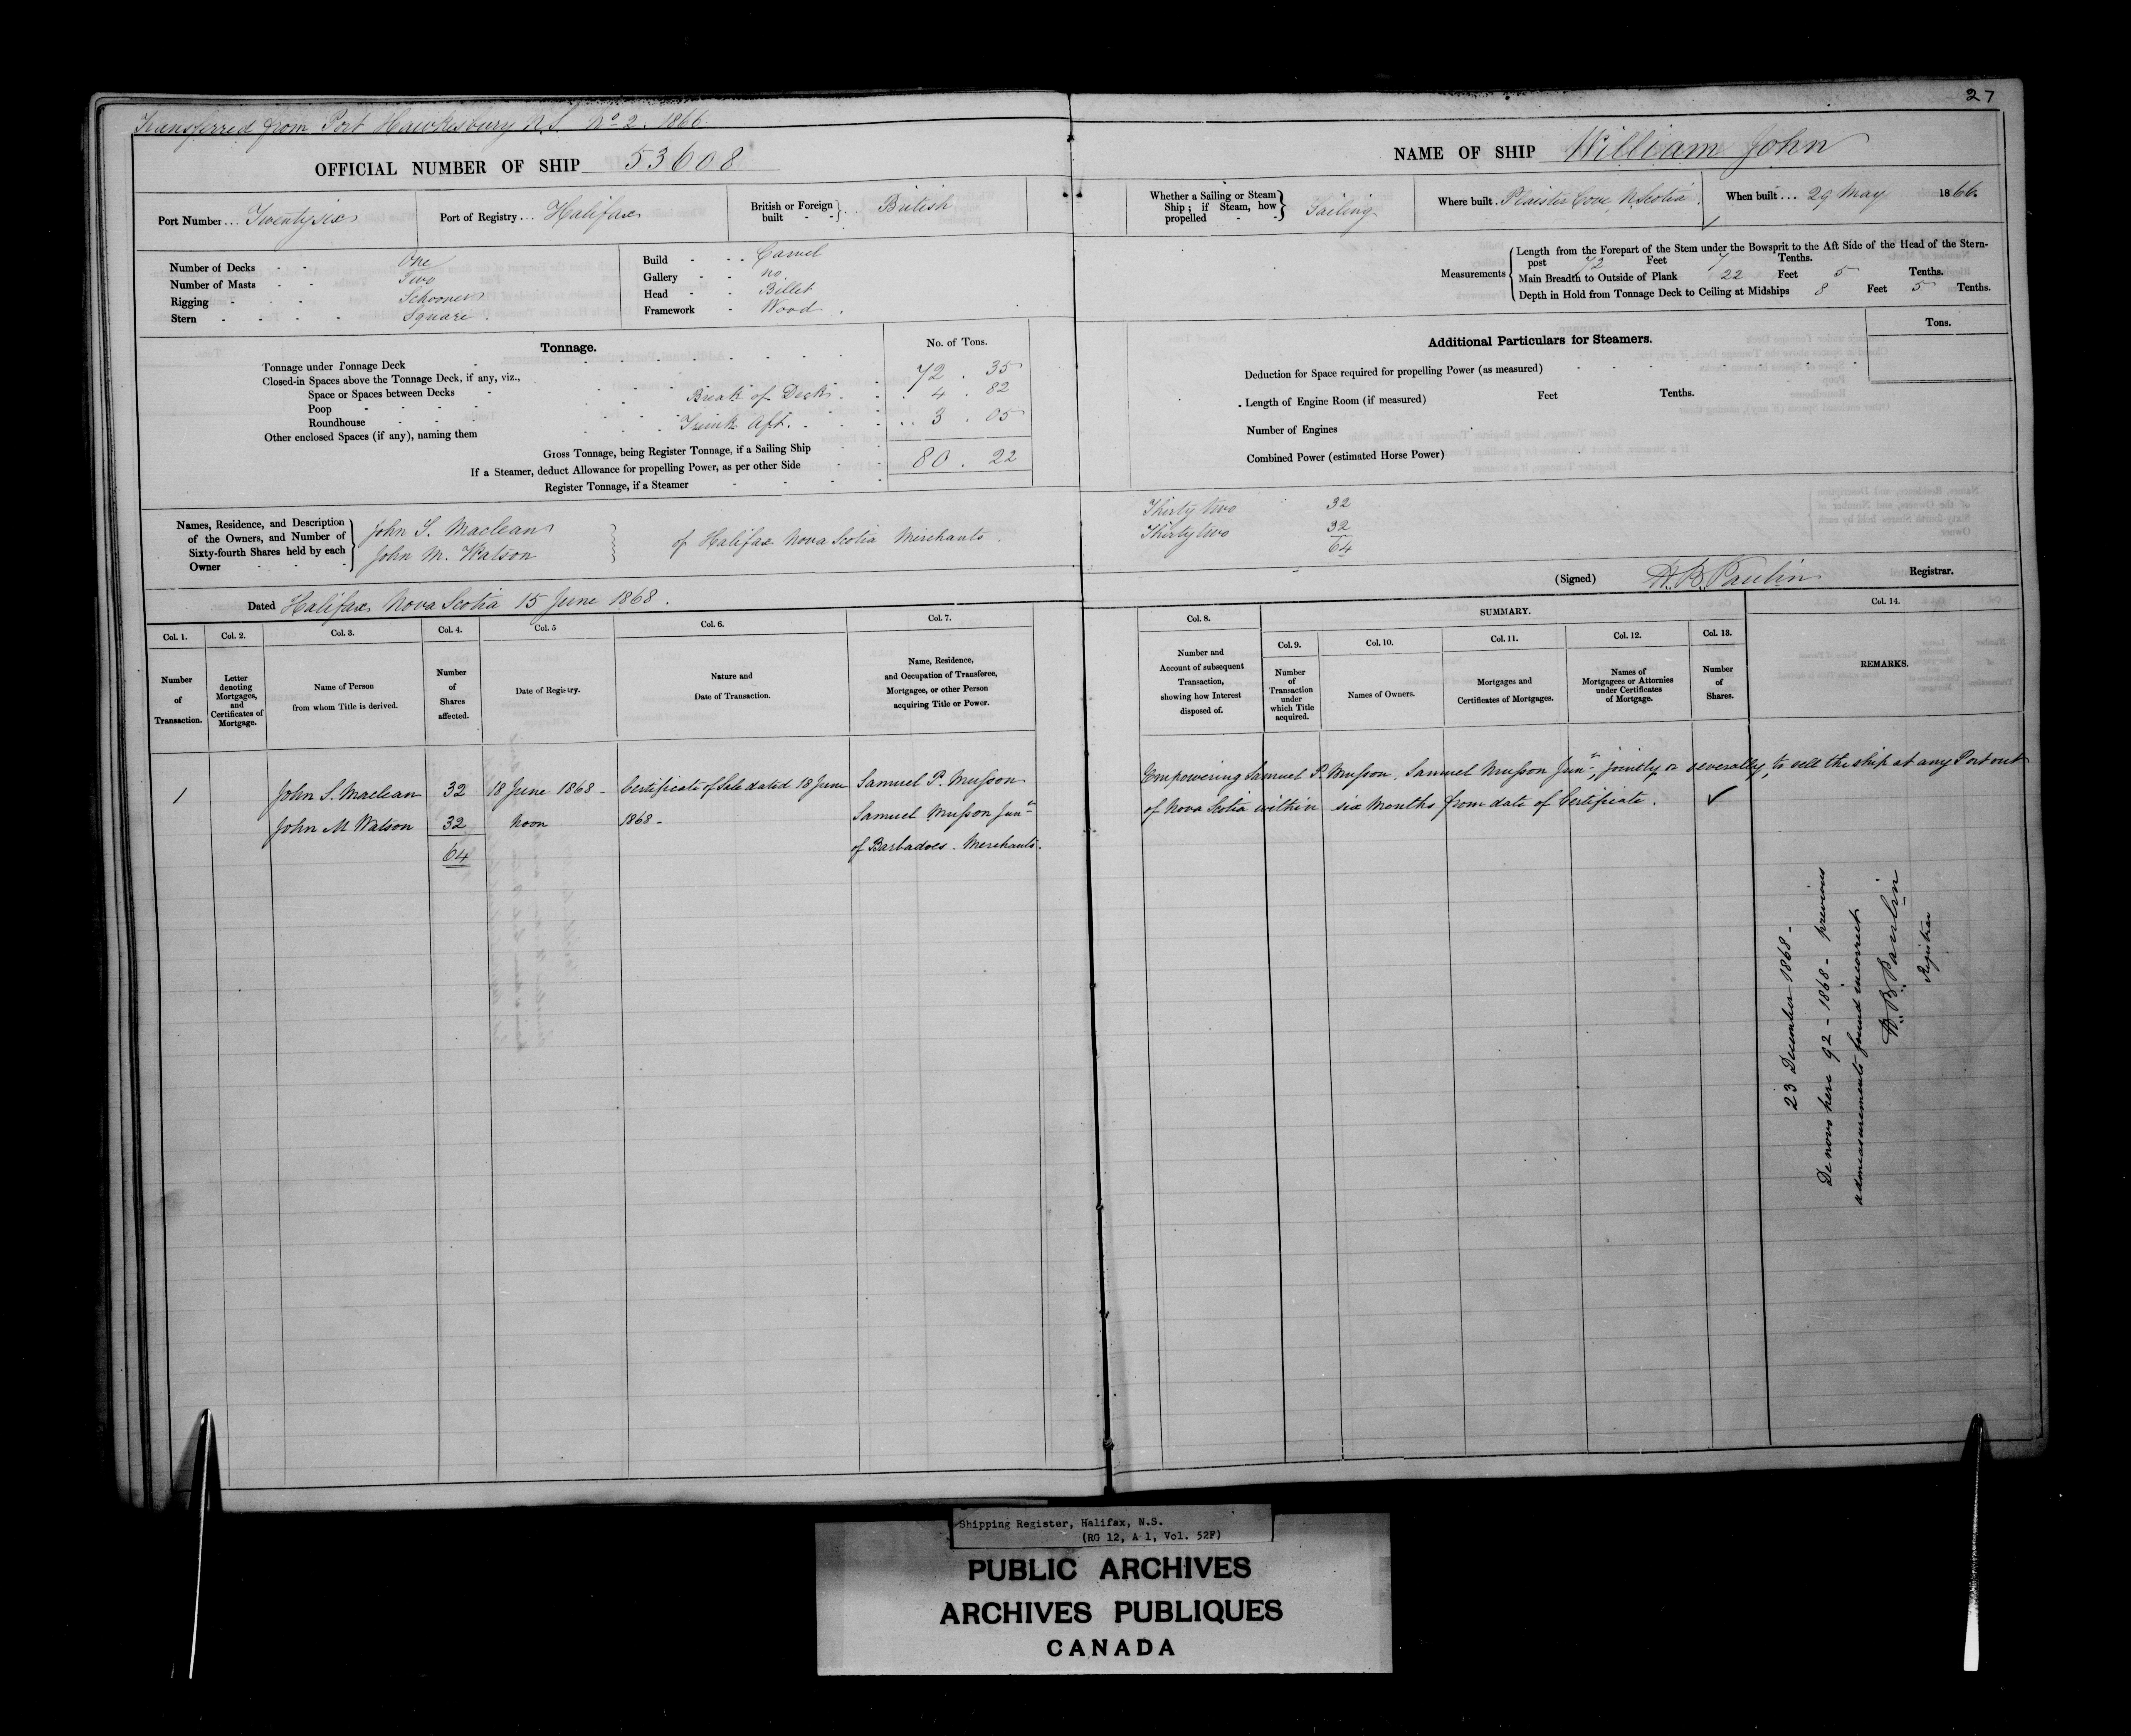 27
Transferred from Port Hawkesbury N.S. No 2. 1866.
OFFICIAL NUMBER OF SHIP 53608
NAME OF SHIP William John
Port Number... Twenty six
Port of Registry... Halifax
British or Foreign built } British
Whether a Sailing or Steam Ship; if Steam, how propelled } Sailing
Where built. Plaister Cove, N. Scotia.
When built... 29 May 1866.
Number of Decks - - One
Number of Masts - - Two
Rigging - - Schooner
Stern - - - - Square.
Build - - - Carvel
Gallery - - no
Head - - Billet
Framework - Wood.
Measurements
Length from the Forepart of the Stem under the Bowsprit to the Aft Side of the Head of the Stern-
post 72 Feet 7 Tenths.
Main Breadth to Outside of Plank 22 Feet 5 Tenths.
Depth in Hold from Tonnage Deck to Ceiling at Midships 8 Feet 5 Tenths.
Tonnage.
No. of Tons.
Tonnage under Tonnage Deck 72 . 35
Closed-in Spaces above the Tonnage Deck, if any, viz.,
Space or Spaces between Decks - Break of Deck 4 . 82
Poop
Roundhouse Trunk Aft. 3 . 05
Other enclosed Spaces (if any), naming them
Gross Tonnage, being Register Tonnage, if a Sailing Ship 80 . 22
If a Steamer, deduct Allowance for propelling Power, as per other Side
Register Tonnage, if a Steamer
Additional Particulars for Steamers.
Tons.
Deduction for Space required for propelling Power (as measured)
Length of Engine Room (if measured) Feet Tenths.
Number of Engines
Combined Power (estimated Horse Power)
Names, Residence, and Description
of the Owners, and Number of
Sixty-fourth Shares held by each
Owner
John S. Maclean
John M. Watson
of Halifax Nova Scotia Merchants.
Thirty two 32
Thirty two 32
64
(Signed) H. B. Paulin Registrar.
Dated Halifax Nova Scotia 15 June 1868.
Col. 1. Col. 2. Col. 3. Col. 4. Col. 5 Col. 6. Col. 7.
Col. 8. SUMMARY. Col. 14.
Col. 9. Col. 10. Col. 11. Col. 12. Col. 13.
Number of Transaction.
Letter denoting Mortgages, and Certificates of Mortgage.
Name of Person from whom Title is derived.
Number of Shares affected.
Date of Registry.
Nature and Date of Transaction.
Name, Residence, and Occupation of Transferee, Mortgagee, or other Person acquiring Title or Power.
Number and Account of subsequent Transaction, showing how Interest disposed of.
Number of Transaction under which Title acquired.
Names of Owners.
Mortgages and Certificates of Mortgages.
Names of Mortgagees or Attornies under Certificates of Mortgage.
Number of Shares.
REMARKS.
1 John S. Maclean 32 18 June 1868 - Certificate of Sale dated 18 June Samuel P. Musson
John M Watson 32 Noon 1868 - Samuel Musson Junr
64 of Barbadoes. Merchants.
Empowering Samuel P. Musson, Samuel Musson Junr, jointly or severally, to sell the ship at any Port out
of Nova Scotia within six Months from date of Certificate. ✓
23 December 1868 -
De novo here 92 - 1868 - previous
admeasurements found incorrect
H. B. Paulin
Registrar
Shipping Register, Halifax, N.S.
(RG 12, A 1, Vol. 52F)
PUBLIC ARCHIVES
ARCHIVES PUBLIQUES
CANADA